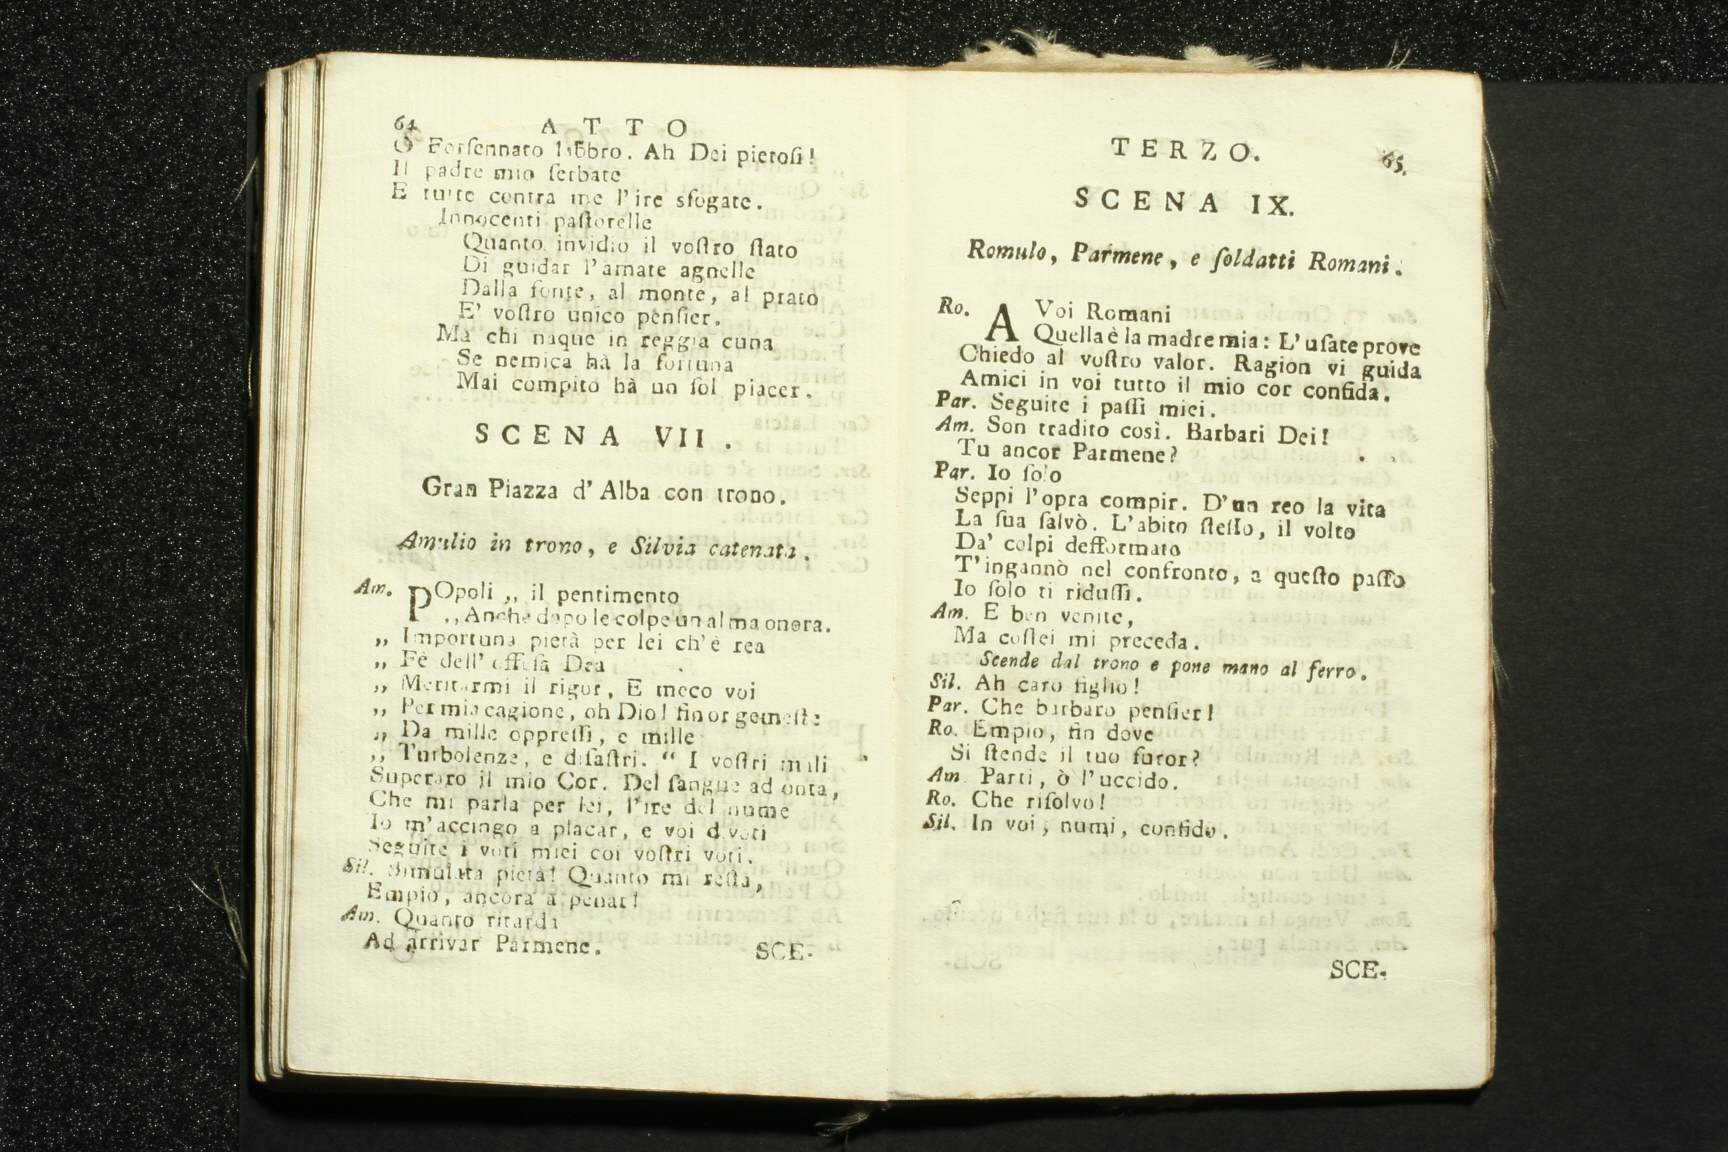 64 ATTO
O Forſennato labbro. Ah Dei pietoſi!
Il padre mio ſerbate
E tutte contra me l'ire sfogate.
Innocenti paſtorelle
Quanto invidio il voſtro ſtato
Di guidar l'amate agnelle
Dalla fonte, al monte, al prato
E' voſtro unico penſier.
Ma chi naque in reggia cuna
Se nemica hà la fortuna
Mai compito hà un ſol piacer.
SCENA VII.
Gran Piazza d'Alba con trono.
Amulio in trono, e Silvia catenata.
Am. POpoli ,, il pentimento
,, Anche dopo le colpe un alma onora.
,, Importuna pietà per lei ch'è rea
,, Fè dell'offeſa Dea
,, Meritarmi il rigor, E meco voi
,, Per mia cagione, oh Dio! finor gemeſte
,, Da mille oppreſſi, e mille
,, Turbolenze, e diſaſtri. “ I voſtri mali
Superaro il mio Cor. Del ſangue ad onta,
Che mi parla per lei, l'ire del nume
Io m'accingo a placar, e voi divoti
Seguite i voti miei coi voſtri voti.
Sil. Simulata pietà! Quanto mi reſta,
Empio, ancora a penar!
Am. Quanto ritarda
Ad arrivar Parmene.
SCE-
TERZO. 65.
SCENA IX.
Romulo, Parmene, e ſoldatti Romani.
Ro. A Voi Romani
Quella è la madre mia: L'uſate prove
Chiedo al voſtro valor. Ragion vi guida
Amici in voi tutto il mio cor confida.
Par. Seguite i paſſi miei.
Am. Son tradito così. Barbari Dei!
Tu ancor Parmene?
Par. Io ſolo
Seppi l'opra compir. D'un reo la vita
La ſua ſalvò. L'abito ſteſſo, il volto
Da' colpi defformato
T'ingannò nel confronto, a queſto paſſo
Io ſolo ti riduſſi.
Am. E ben venite,
Ma coſtei mi preceda.
Scende dal trono e pone mano al ferro.
Sil. Ah caro figlio!
Par. Che barbaro penſier!
Ro. Empio, fin dove
Si ſtende il tuo furor?
Am. Parti, ò l'uccido.
Ro. Che riſolvo!
Sil. In voi, numi, confido.
SCE-